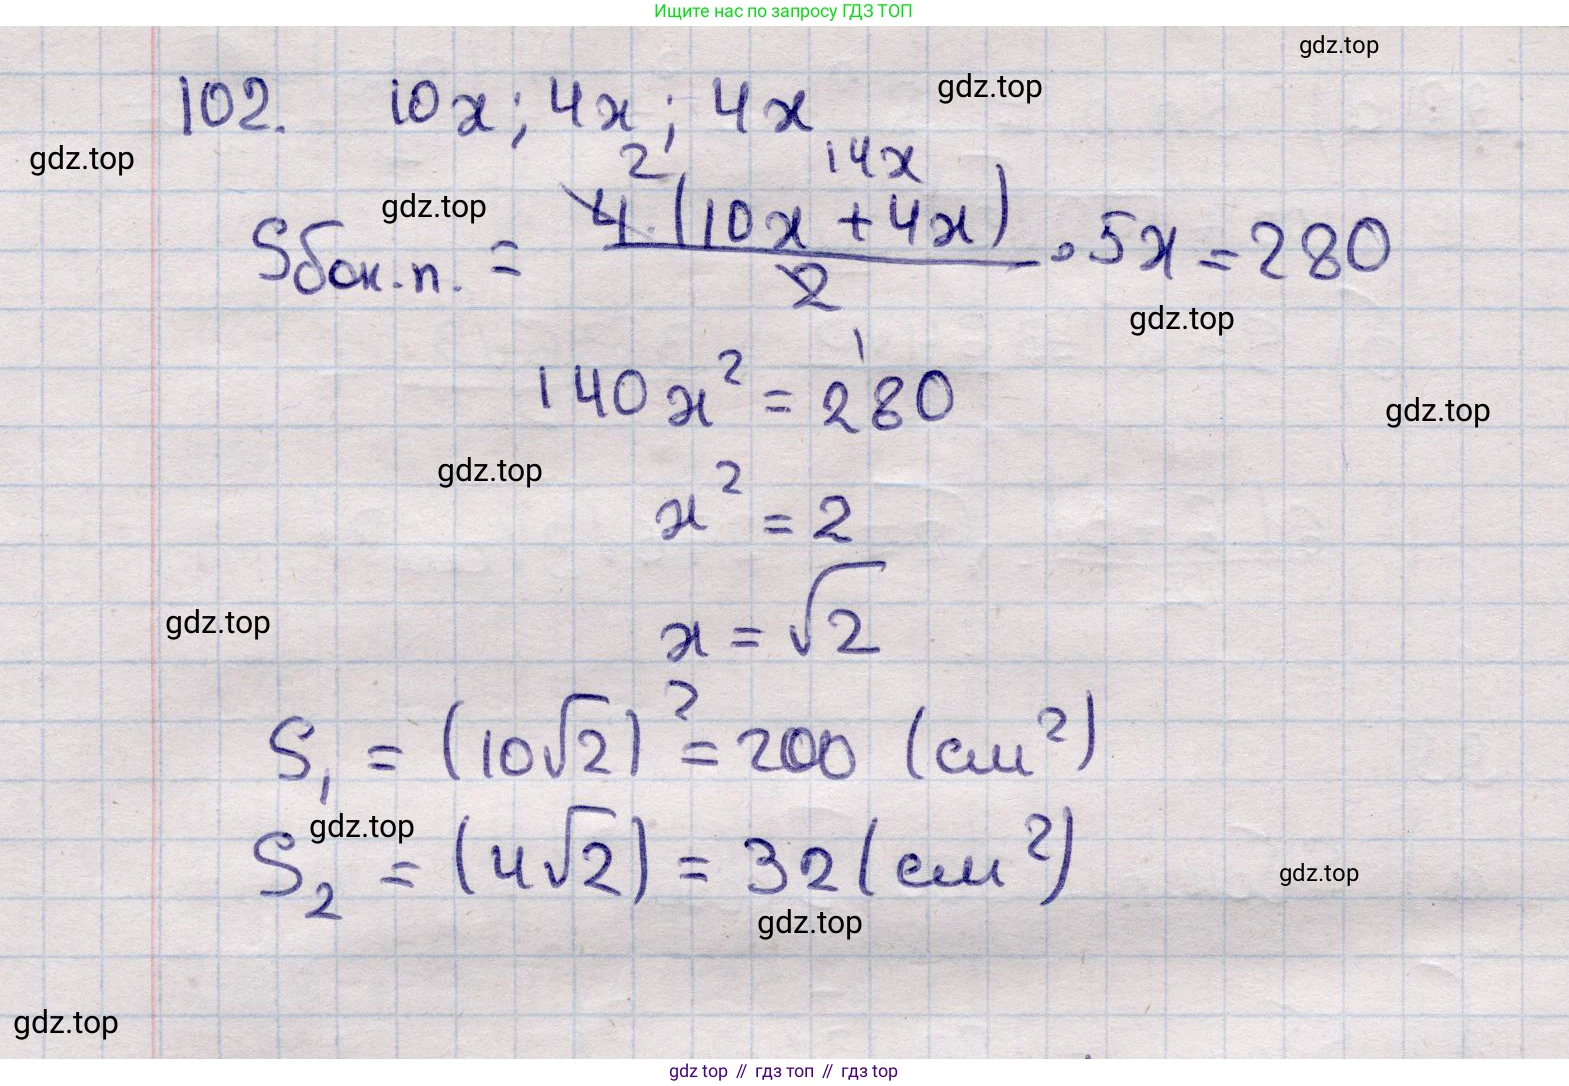 Ищите нас по запросу ГДЗ ТОП
gdz.top
102. 10x; 4x; 4x
gdz.top
gdz.top
2 14x
gdz.top
Sбок.п. = 4·(10x + 4x) / 2 · 5x = 280
gdz.top
1
140x² = 280
gdz.top
gdz.top
x² = 2
gdz.top
x = √2
S₁ = (10√2)² = 200 (см²)
gdz.top
S₂ = (4√2) = 32 (см²)
gdz.top
gdz.top
gdz.top
gdz top // гдз топ // гдз top